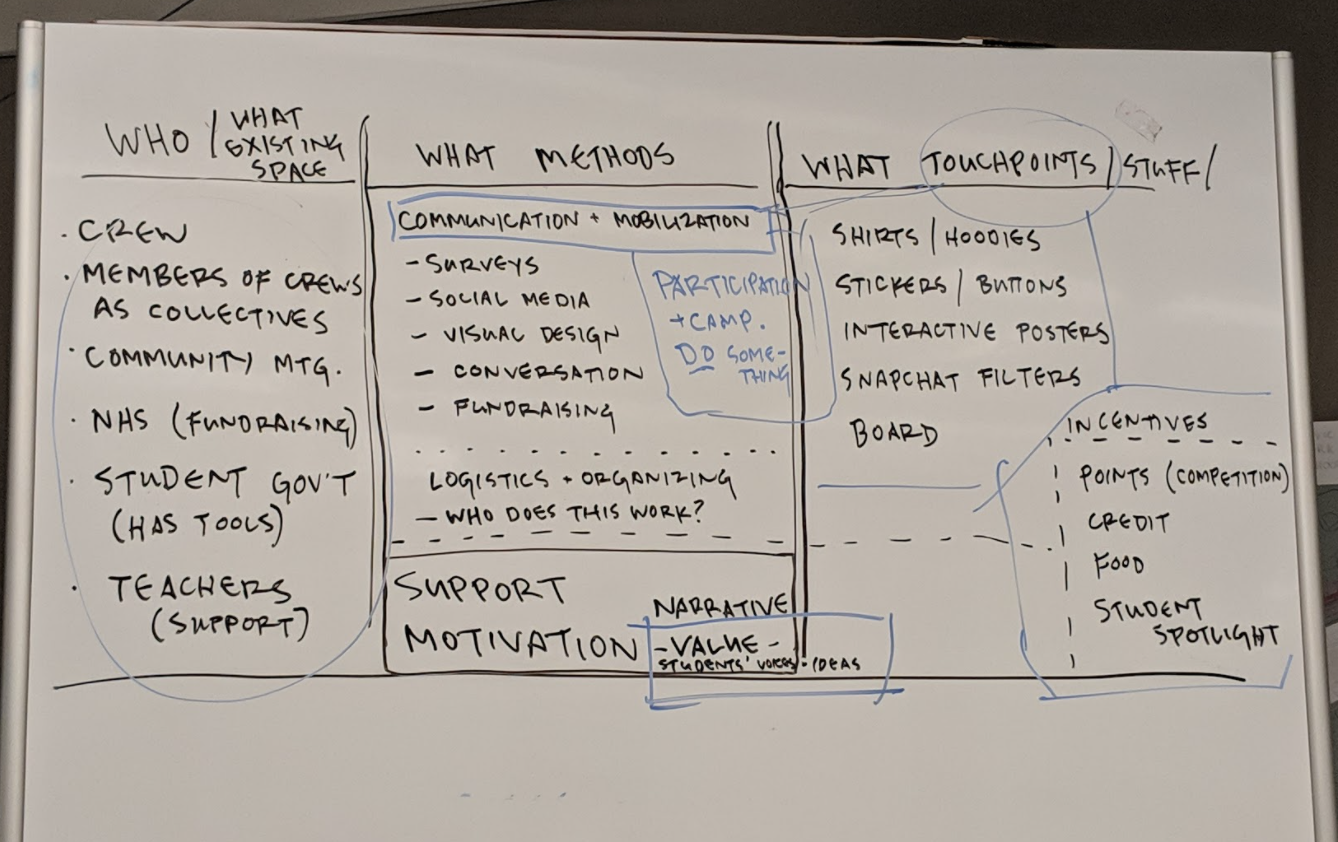 WHO / WHAT
EXISTING
SPACE
· CREW
· MEMBERS OF CREWS
AS COLLECTIVES
· COMMUNITY MTG.
· NHS (FUNDRAISING)
· STUDENT GOV'T
(HAS TOOLS)
· TEACHERS
(SUPPORT)
WHAT METHODS
COMMUNICATION + MOBILIZATION
- SURVEYS
- SOCIAL MEDIA
- VISUAL DESIGN
- CONVERSATION
- FUNDRAISING
PARTICIPATION
+ CAMP.
DO SOME-
THING
LOGISTICS + ORGANIZING
- WHO DOES THIS WORK?
SUPPORT
MOTIVATION
NARRATIVE
- VALUE -
STUDENTS' VOICES + IDEAS
WHAT TOUCHPOINTS / STUFF /
SHIRTS / HOODIES
STICKERS / BUTTONS
INTERACTIVE POSTERS
SNAPCHAT FILTERS
BOARD
INCENTIVES
POINTS (COMPETITION)
CREDIT
FOOD
STUDENT
SPOTLIGHT